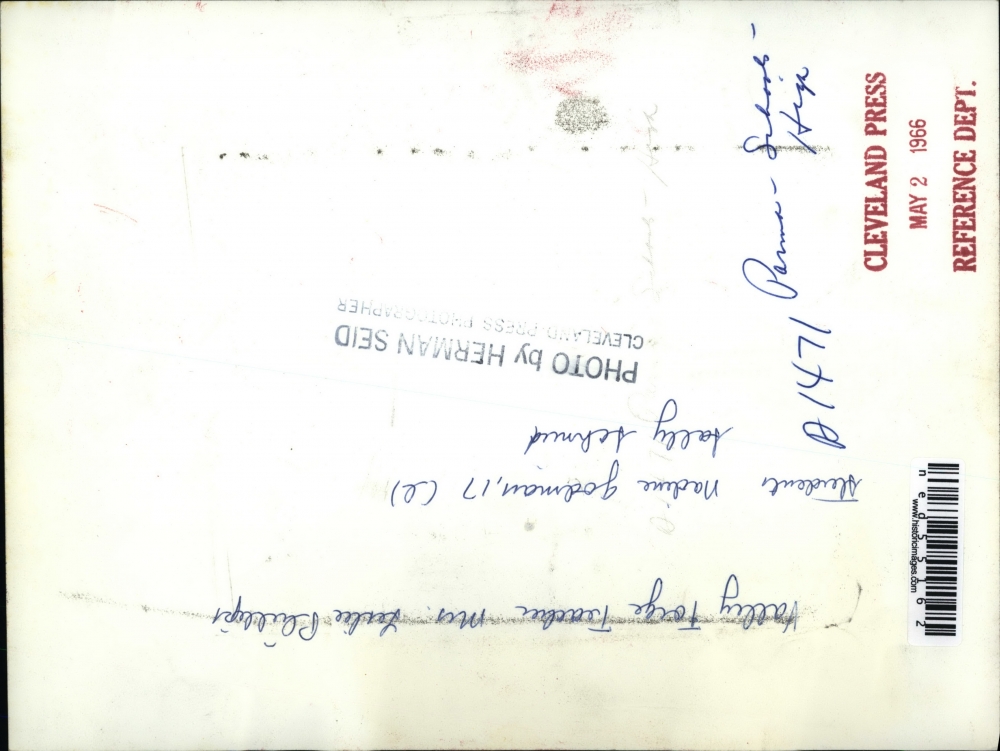 Valley Forge Teacher Mrs. Leslie Phillips
Students Nadine Godman, 17 (L)
Sally Schmid
PHOTO by HERMAN SEID
CLEVELAND PRESS PHOTOGRAPHER
A 1471 Parma - Schools -
High
CLEVELAND PRESS
MAY 2 1966
REFERENCE DEPT.
www.historicimages.com